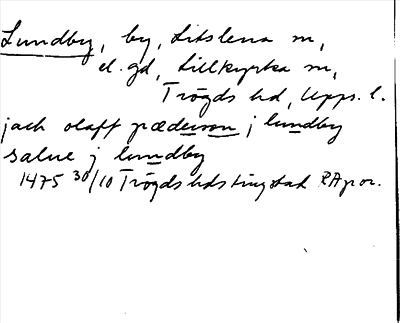 Lundby, by, Litslena sn,
el. gd, Lillkyrka sn,
Trögds hd, Upps. l.
jach olaff pæderson j lundby
salue j lundby
1475 30/10 Trögds hds tingstad RApor.